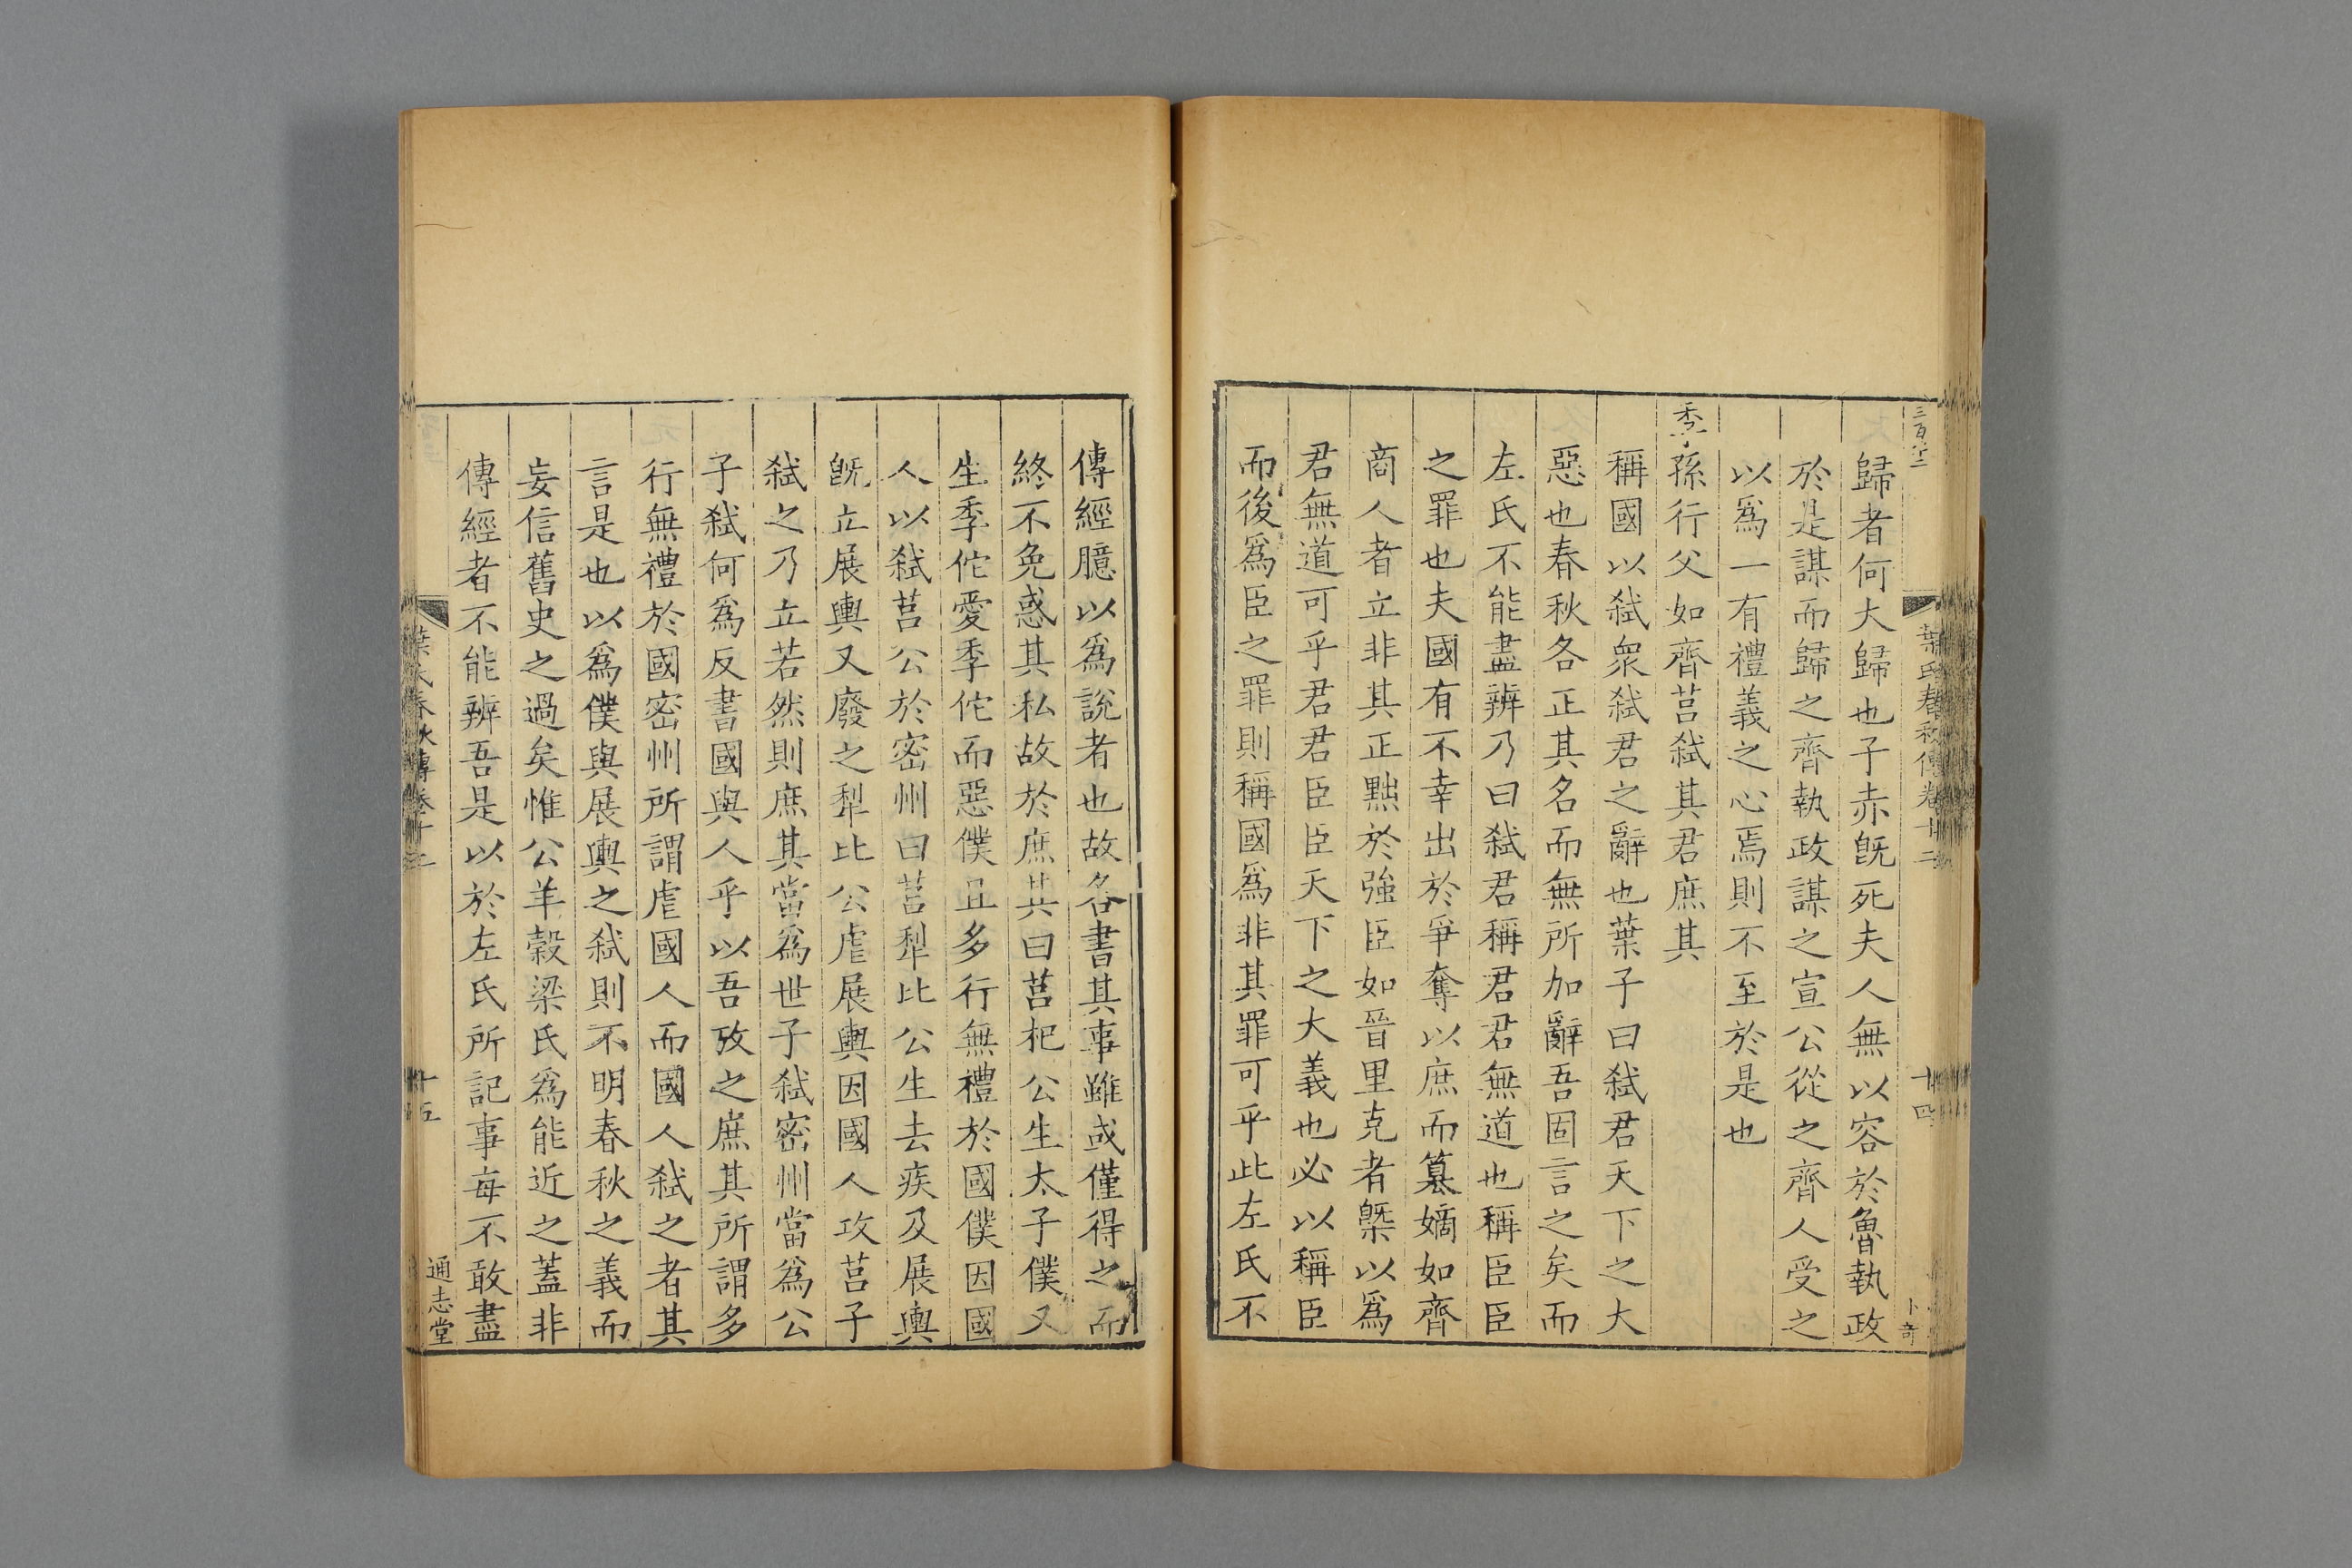 三百八十二
葉氏春秋傳卷十二
十四
卜奇
歸者何大歸也子赤旣死夫人無以容於魯執政
於是謀而歸之齊執政謀之宣公從之齊人受之
以爲一有禮義之心焉則不至於是也
季孫行父如齊莒弑其君庶其
稱國以弑衆弑君之辭也葉子曰弑君天下之大
惡也春秋各正其名而無所加辭吾固言之矣而
左氏不能盡辨乃曰弑君稱君君無道也稱臣臣
之罪也夫國有不幸出於爭奪以庶而簒嫡如齊
商人者立非其正黜於強臣如晉里克者槩以爲
君無道可乎君君臣臣天下之大義也必以稱臣
而後爲臣之罪則稱國爲非其罪可乎此左氏不
傳經臆以爲說者也故各書其事雖或僅得之而
終不免惑其私故於庶其曰莒杞公生太子僕又
生季佗愛季佗而惡僕且多行無禮於國僕因國
人以弑莒公於密州曰莒犁比公生去疾及展輿
旣立展輿又廢之犁比公虐展輿因國人攻莒子
弑之乃立若然則庶其當爲世子弑密州當爲公
子弑何爲反書國與人乎以吾攷之庶其所謂多
行無禮於國密州所謂虐國人而國人弑之者其
言是也以爲僕與展輿之弑則不明春秋之義而
妄信舊史之過矣惟公羊穀梁氏爲能近之蓋非
傳經者不能辨吾是以於左氏所記事每不敢盡
葉氏春秋傳卷十二
十五
通志堂